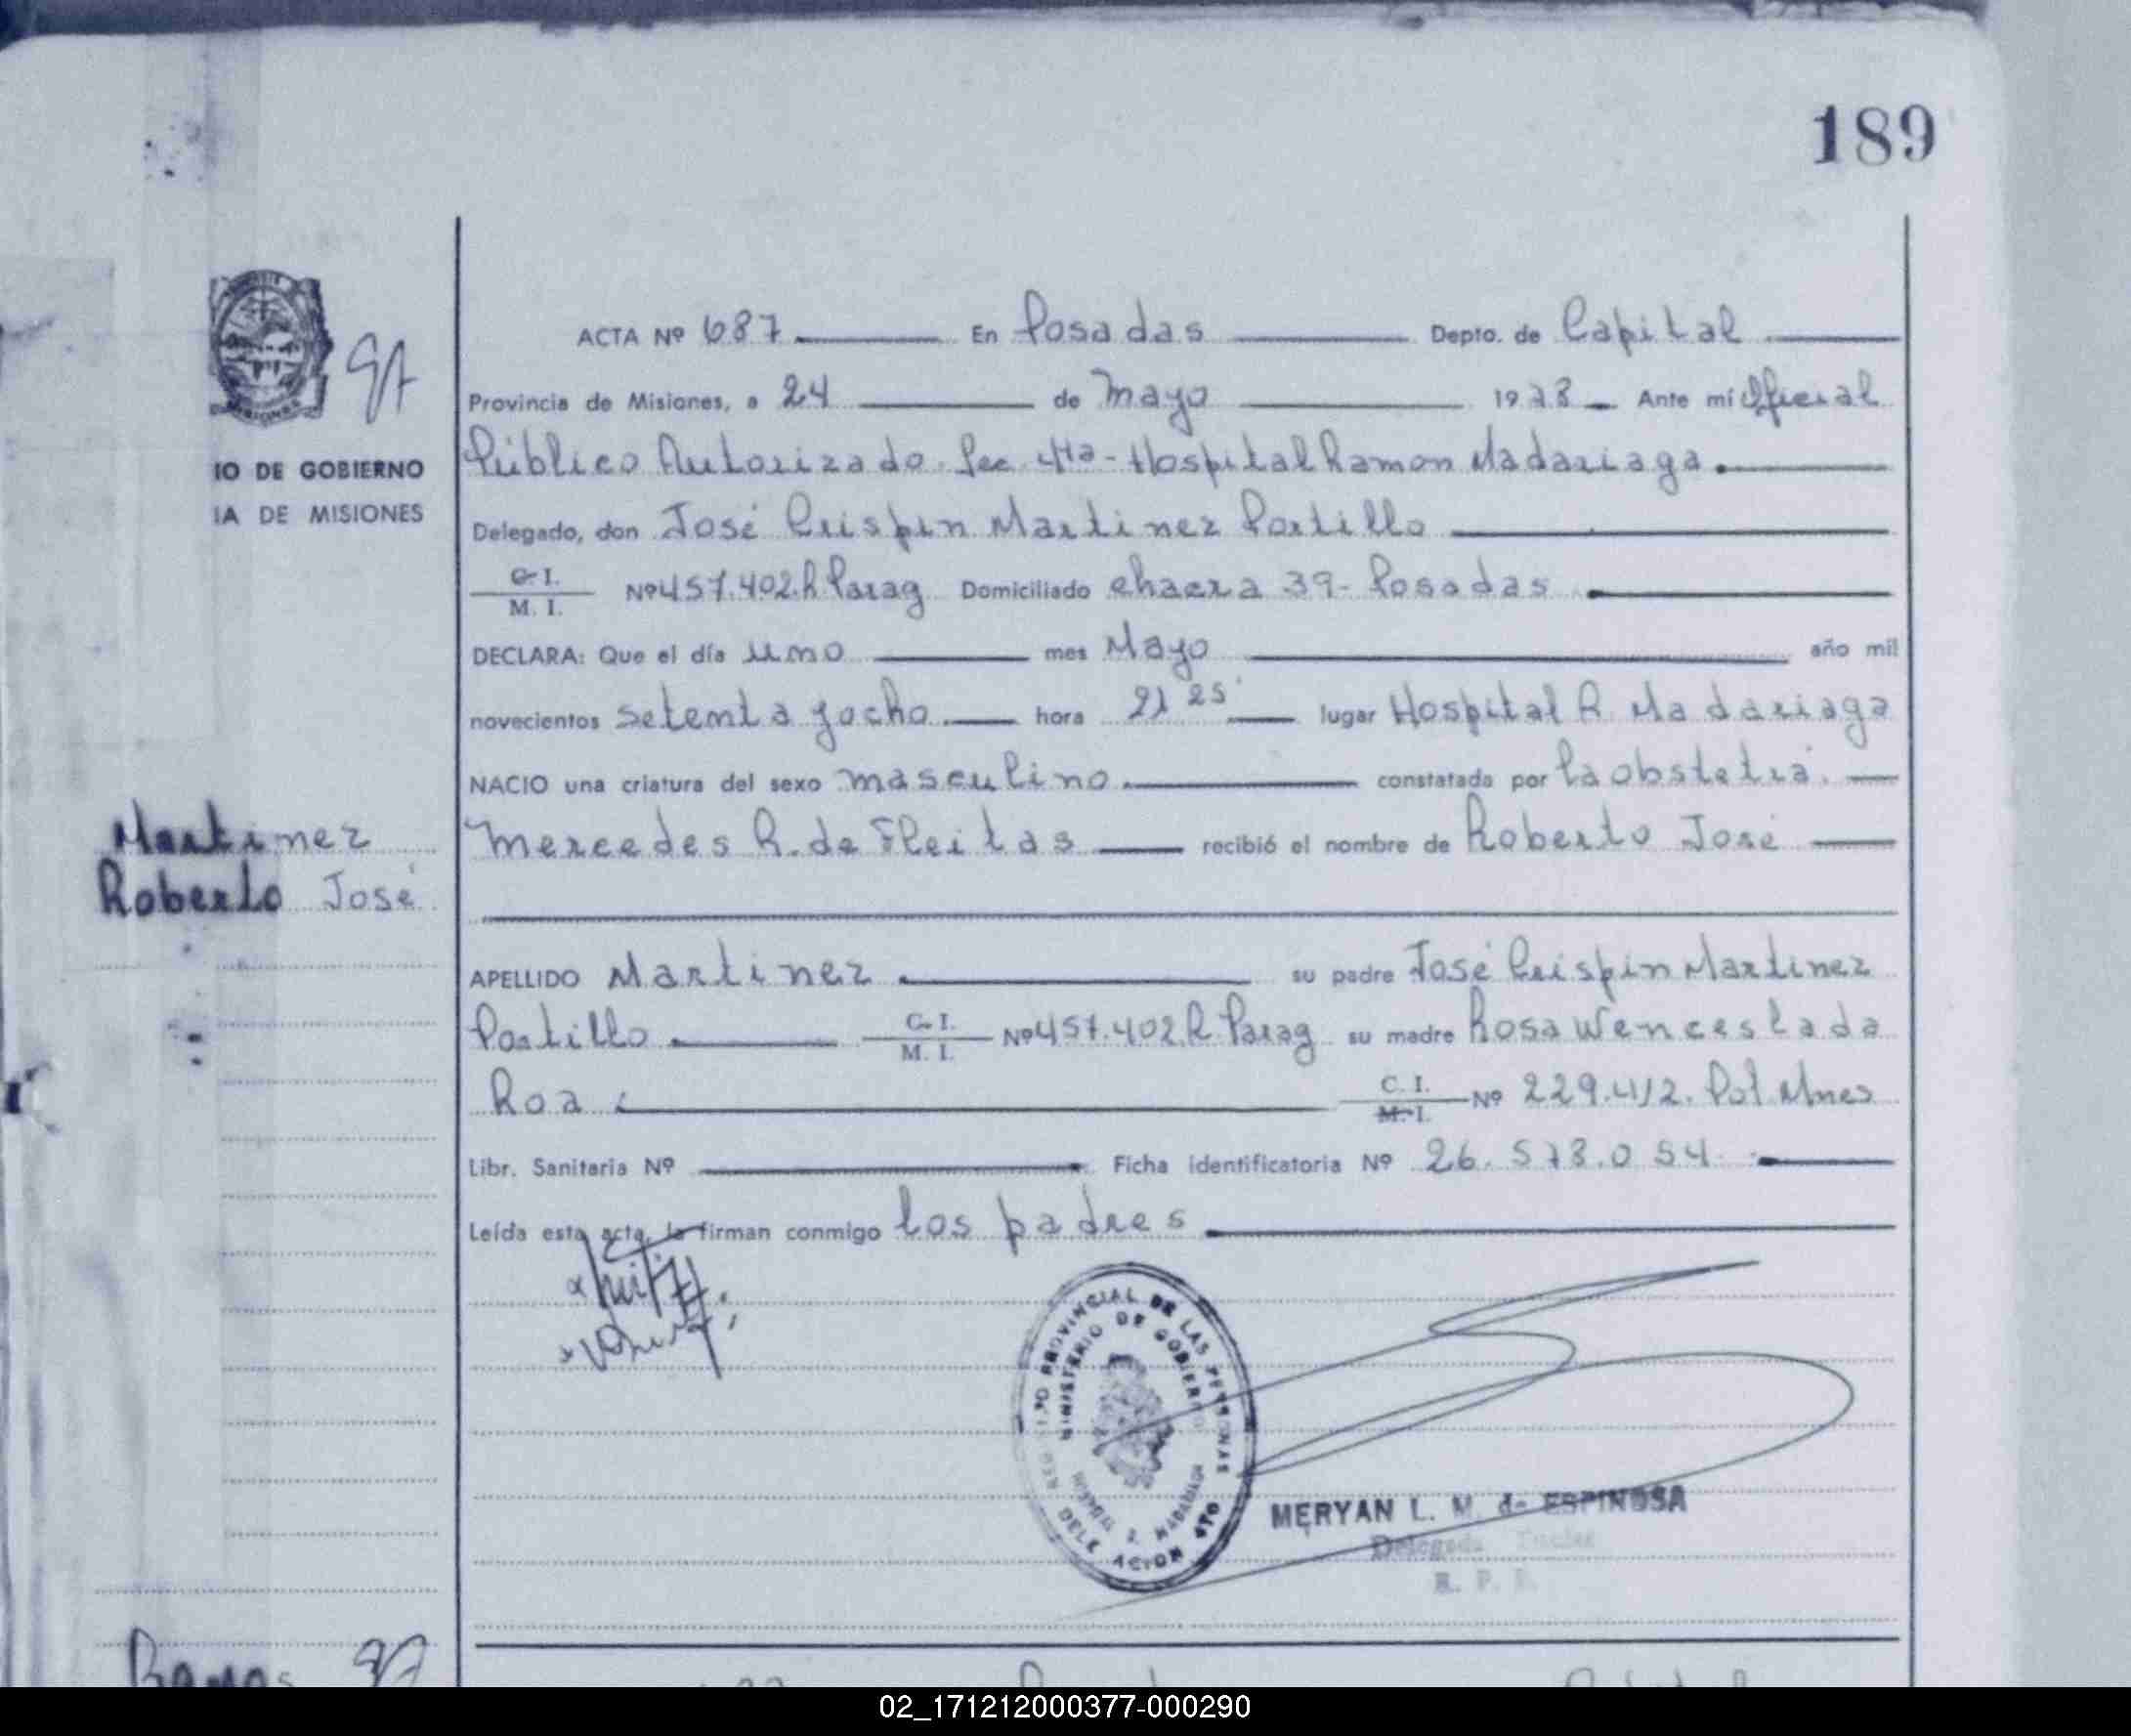 189
ACTA Nº 687 En Posadas Depto. de Capital
Provincia de Misiones, a 24 de Mayo 1978 Ante mí Oficial
IO DE GOBIERNO
Público Autorizado Sec 4ta - Hospital Ramon Madariaga.
IA DE MISIONES
Delegado, don José Crispin Martinez Portillo
C. I.
M. I. Nº 457.402.R Parag Domiciliado chacra 39 - Posadas
DECLARA: Que el día uno mes Mayo año mil
novecientos setenta y ocho hora 21 25' lugar Hospital R. Madariaga
NACIO una criatura del sexo masculino. constatada por la obstetra.
Martinez
Mercedes R. de Fleitas recibió el nombre de Roberto José
Roberto José
APELLIDO Martinez su padre José Crispin Martinez
Portillo C. I. M. I. Nº 457.402.R Parag su madre Rosa Wenceslada
Roa C. I. M. I. Nº 229.412. Pol Mnes
Libr. Sanitaria Nº Ficha identificatoria Nº 26.573.054
Leída esta acta, la firman conmigo los padres
PROVINCIAL DE LAS PERSONAS
MINISTERIO DE GOBIERNO
DELEGACION 4TO
MERYAN L. M. de ESPINOSA
Delegada Titular
R. P.
Ramos
02_171212000377-000290